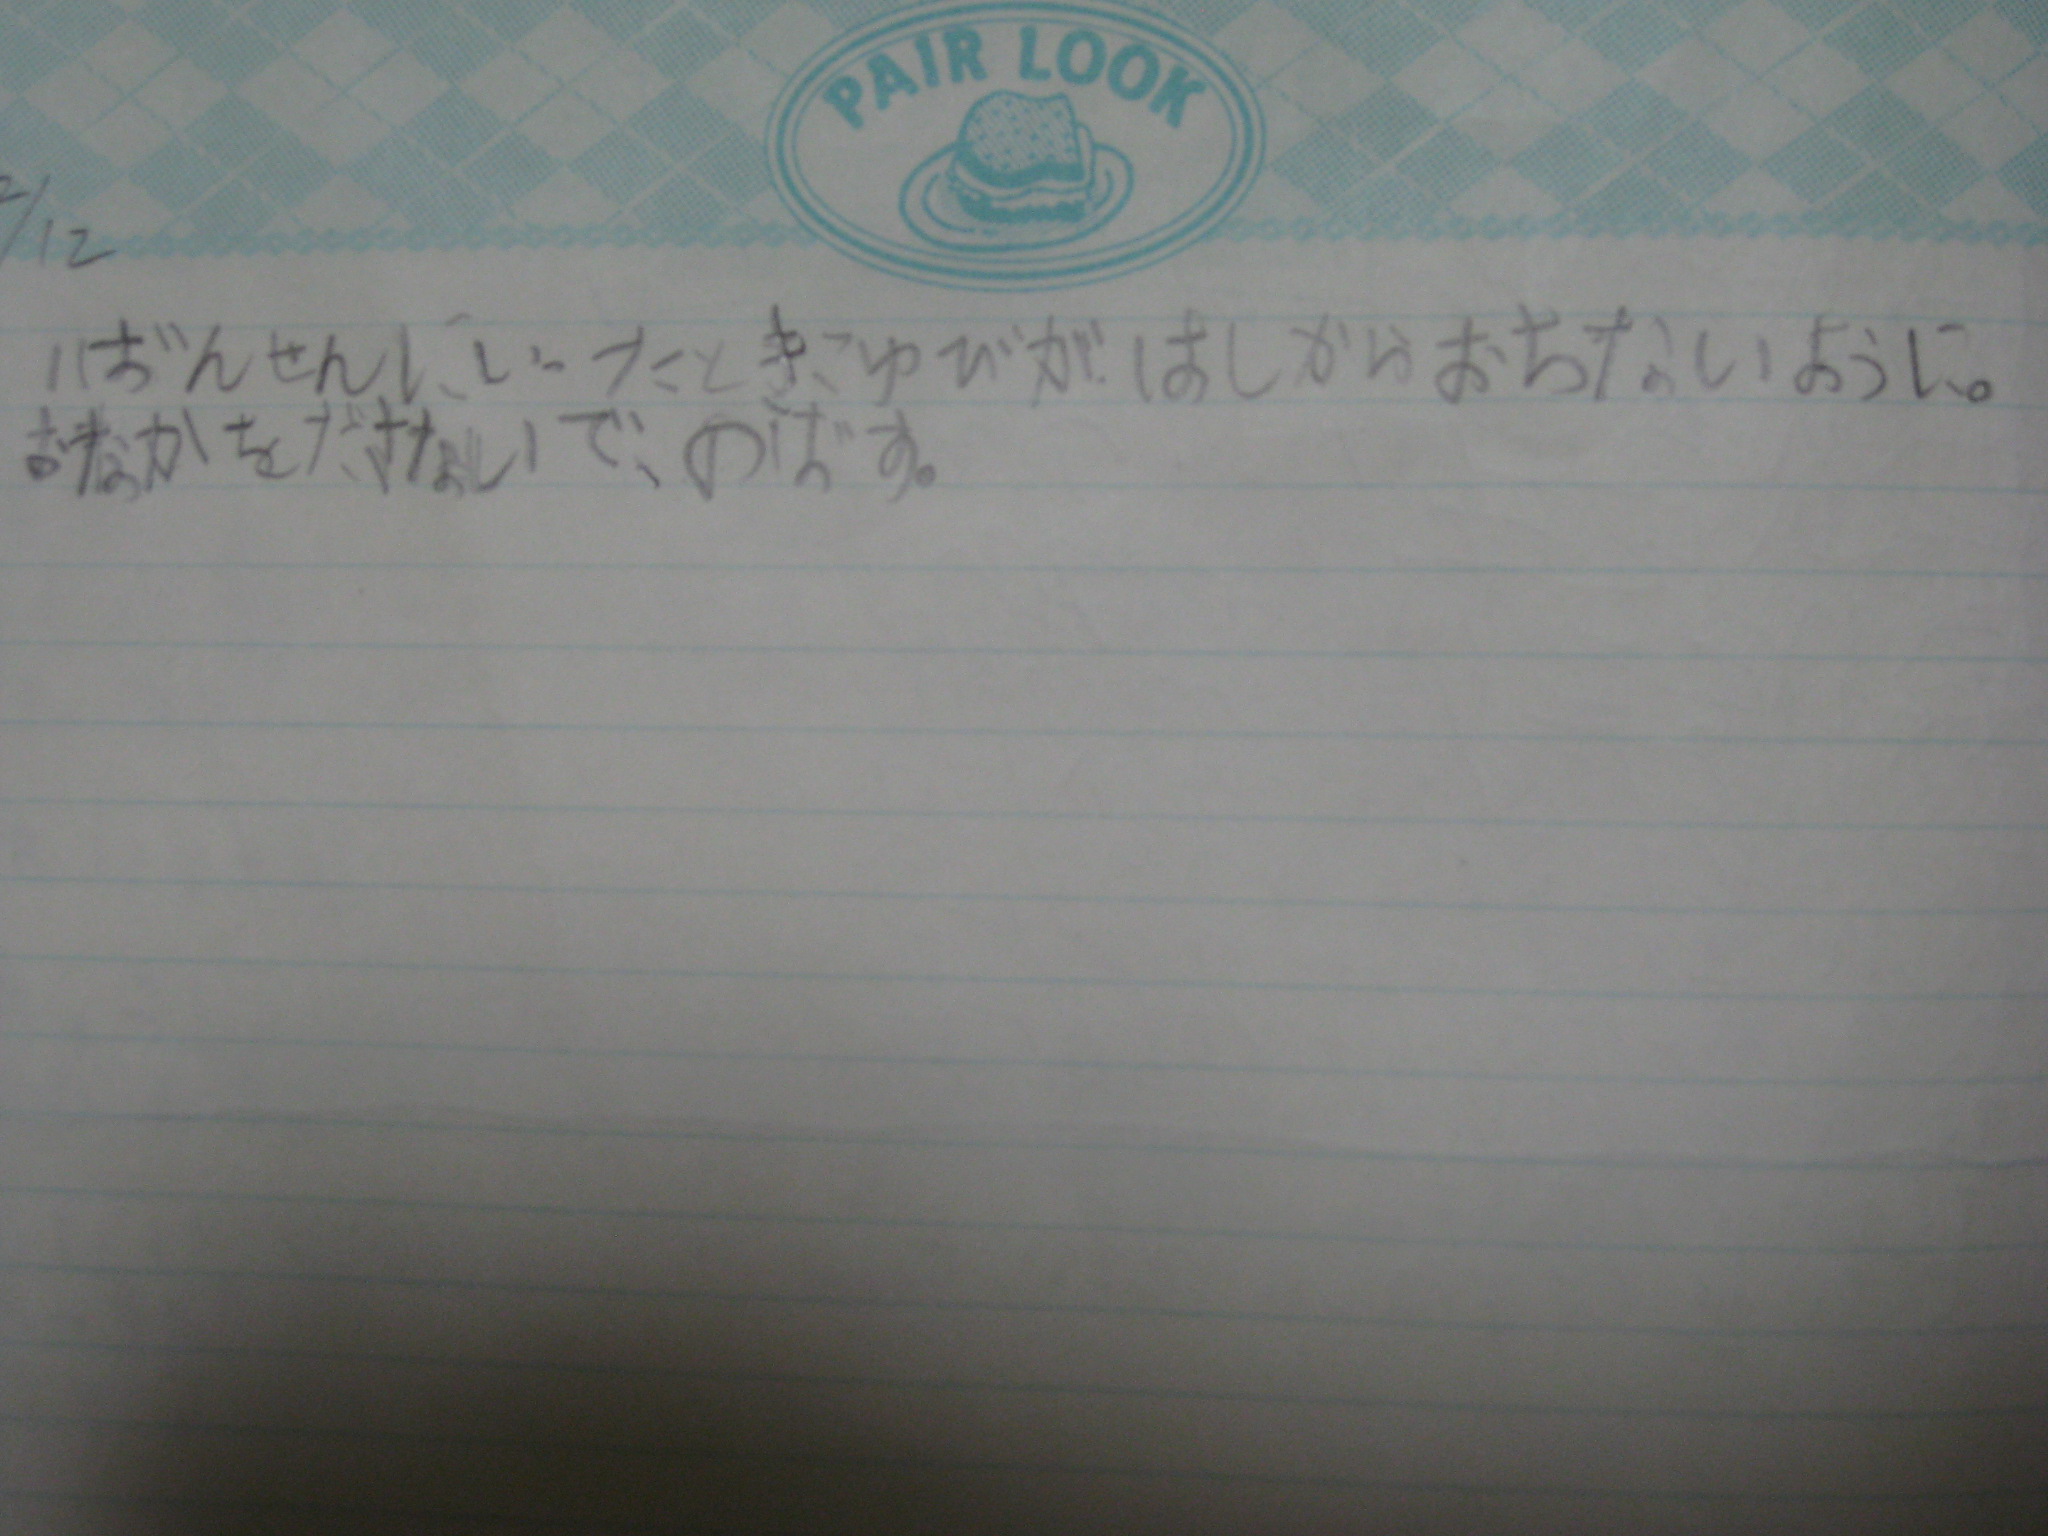 PAIR LOOK
2/12
11ばんせんにいったときこゆびがはしからおちないように。
おなかをださないで、のばす。